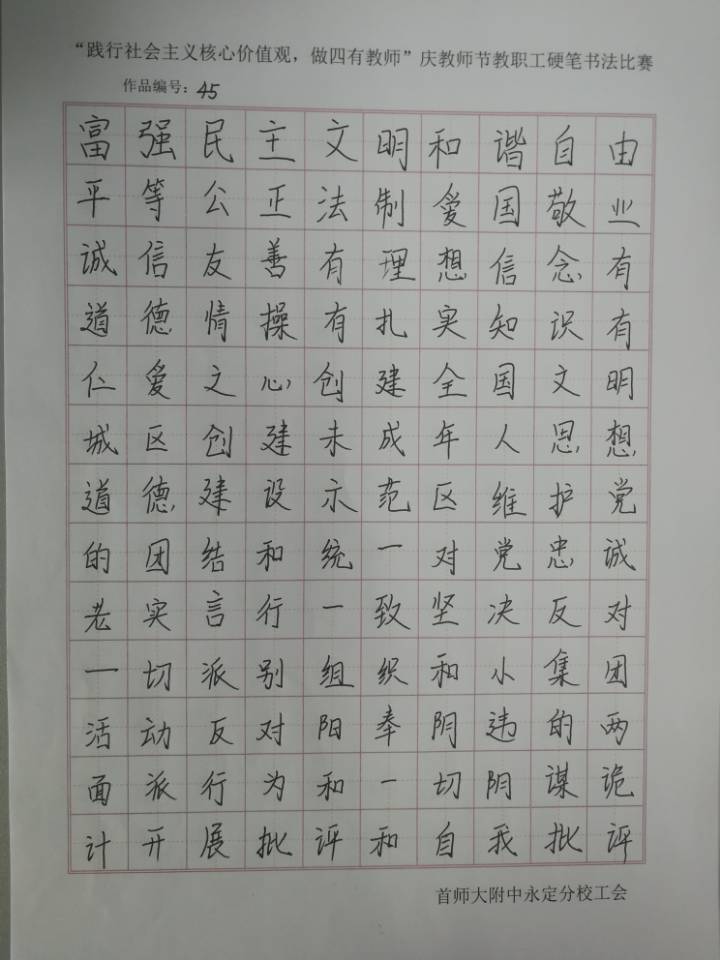 “践行社会主义核心价值观，做四有教师”庆教师节教职工硬笔书法比赛
作品编号：45
富强民主文明和谐自由
平等公正法制爱国敬业
诚信友善有理想信念有
道德情操有扎实知识有
仁爱之心创建全国文明
城区创建未成年人思想
道德建设示范区维护党
的团结和统一对党忠诚
老实言行一致坚决反对
一切派别组织和小集团
活动反对阳奉阴违的两
面派行为和一切阴谋诡
计开展批评和自我批评
首师大附中永定分校工会